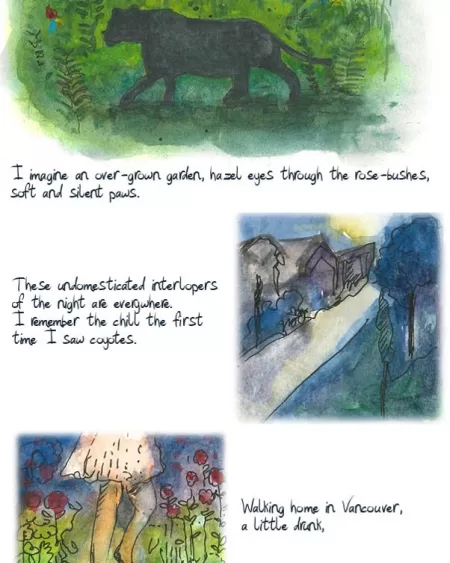 I imagine an over-grown garden, hazel eyes through the rose-bushes,
soft and silent paws.
These undomesticated interlopers
of the night are everywhere.
I remember the chill the first
time I saw coyotes.
Walking home in Vancouver,
a little drunk,